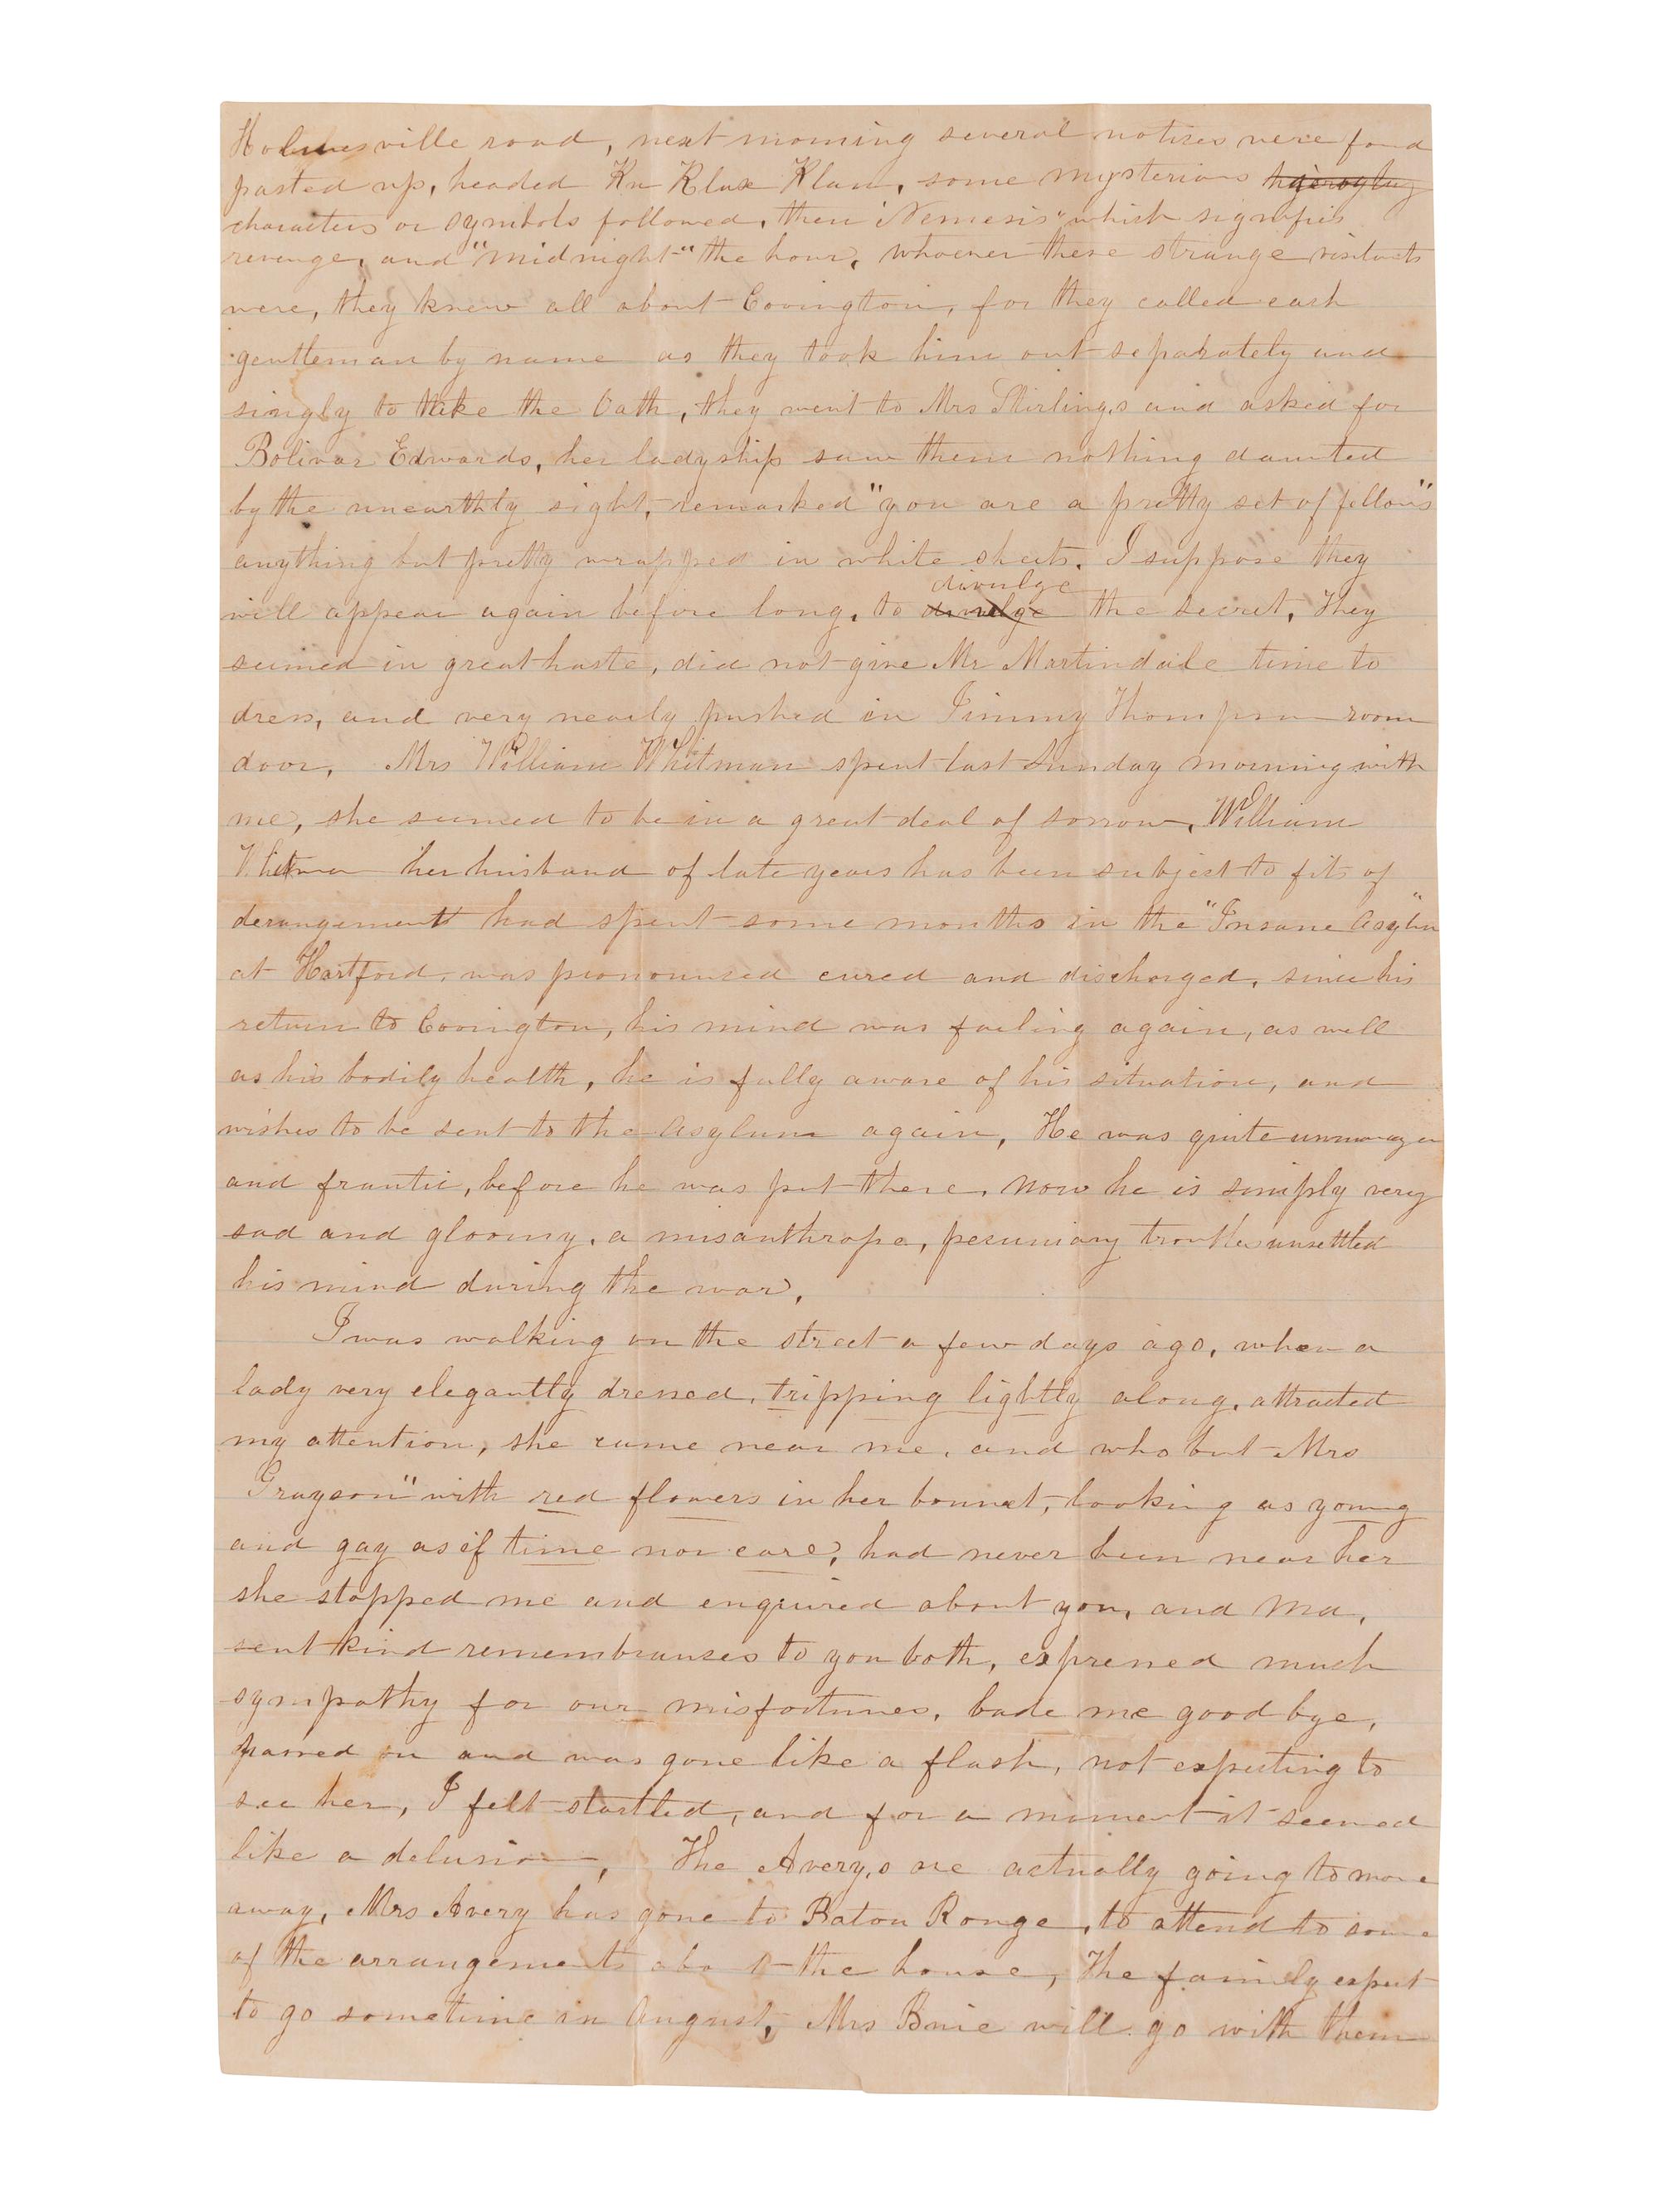 Holmesville road, next morning several notises were fond
pasted up, headed Ku Klux Klan, some mysterious
characters or symbols followed, then "Nemesis" which signifies
revenge, and "midnight" the hour, whoever these strange visitants
were, they knew all about Covington, for they called each
gentleman by name as they took him out separately and
singly to take the Oath, they went to Mrs Stirling,s and asked for
Bolivar Edwards, her ladyship saw them nothing daunted
by the unearthly sight, remarked "you are a pretty set of fellows"
anything but pretty wrapped in white sheets. I suppose they
will appear again before long, to divulge the secret, They
seemed in great haste, did not give Mr Martindale time to
dress, and very nearly pushed in Jimmy Thompson room
door, Mrs William Whitman spent last Sunday morning with
me, she seemed to be in a great deal of sorrow, William
Whitman her husband of late years has been subject to fits of
derangement had spent some months in the "Insane Asylum"
at Hartford, was pronounced cured and discharged, since his
return to Covington, his mind was failing again, as well
as his bodily health, he is fully aware of his situation, and
wishes to be sent to the Asylum again, He was quite
and frantic, before he was put there, now he is simply very
sad and gloomy, a misanthrope, pecuniary troubles unsettled
his mind during the war,
I was walking on the street a few days ago, when a
lady very elegantly dressed, tripping lightly along, attracted
my attention, she came near me, and who but Mrs
Grayson" with red flowers in her bonnet, looking as young
and gay as if time nor care, had never been near her
she stopped me and enquired about you, and Ma,
sent kind remembranses to you both, expressed much
sympathy for our misfortunes, bade me good bye,
passed on and was gone like a flash, not expecting to
see her, I felt startled, and for a moment it seemed
like a delusion, The Avery,s are actually going to move
away, Mrs Avery has gone to Baton Rouge, to attend to some
of the arrangements about the house, The family expect
to go sometime in August, Mrs will go with them